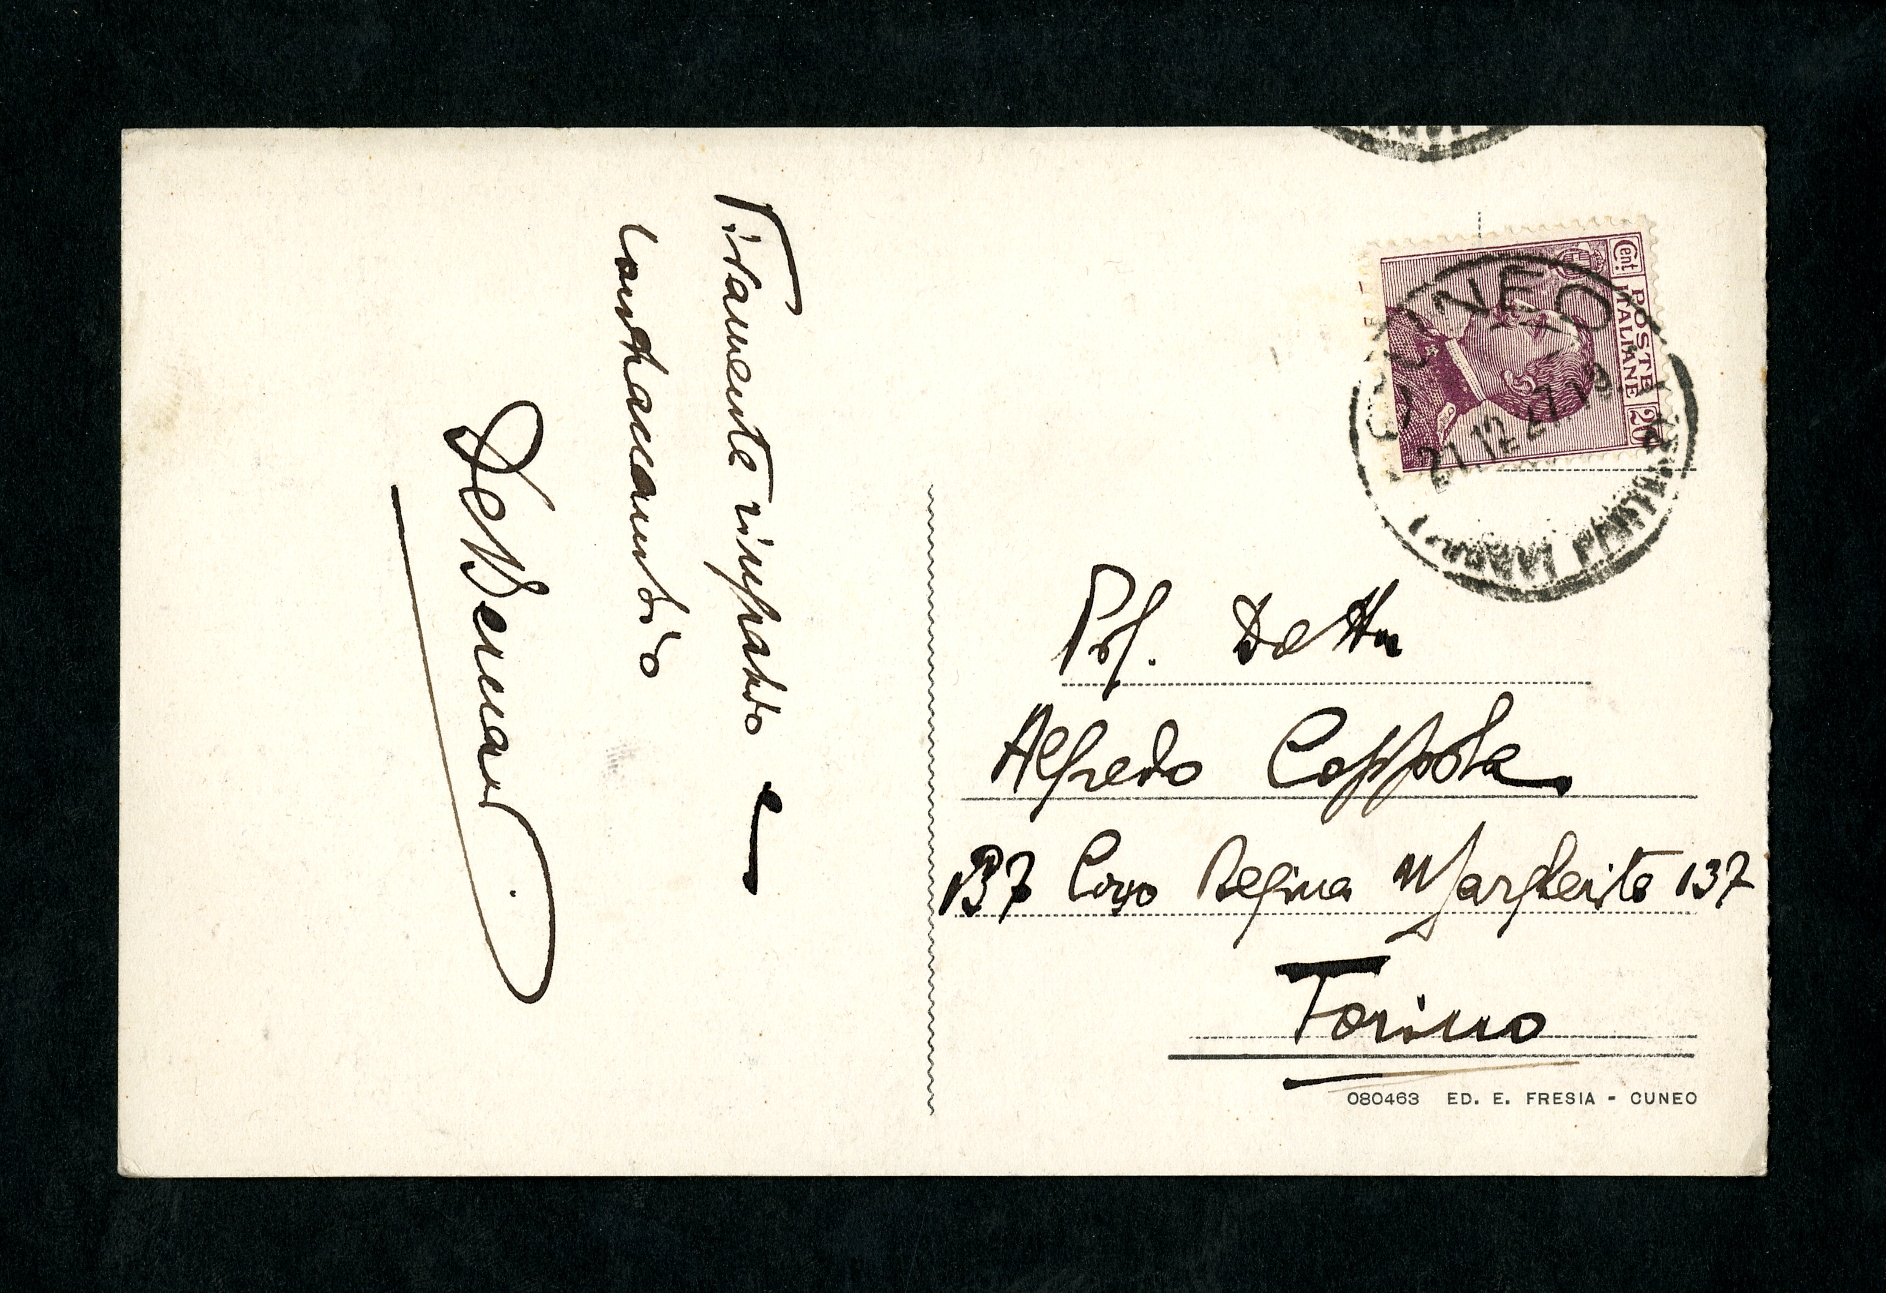 Vivamente ringrazio e
contraccambio
Prof. Dott.
Alfredo Coppola
137 Corso Regina Margherita 137
Torino
080463 ED. E. FRESIA - CUNEO
Cent. POSTE ITALIANE 20
CUNEO
21.12.27.19